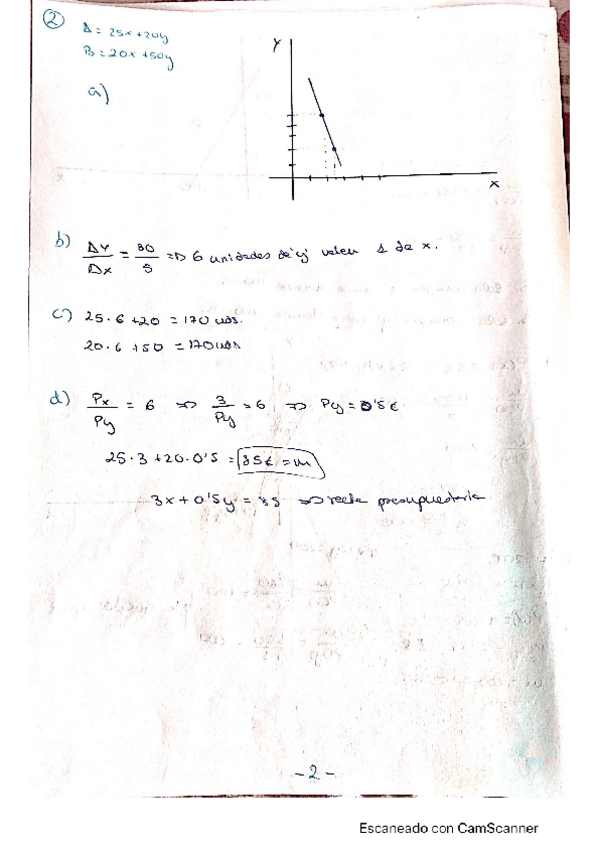 2
A = 25x+20y
B = 20x+50y
a)
y
x
b) Δy/Δx = 30/5 => 6 unidades de 'y' valen 1 de x.
c) 25·6+20 = 170 uds.
20·6+50 = 170 uds
d) Px/Py = 6 => 3/Py = 6 => Py = 0'5€
25·3+20·0'5 = 85€ = m
3x+0'5y = 85 => recta presupuestaria
-2-
Escaneado con CamScanner